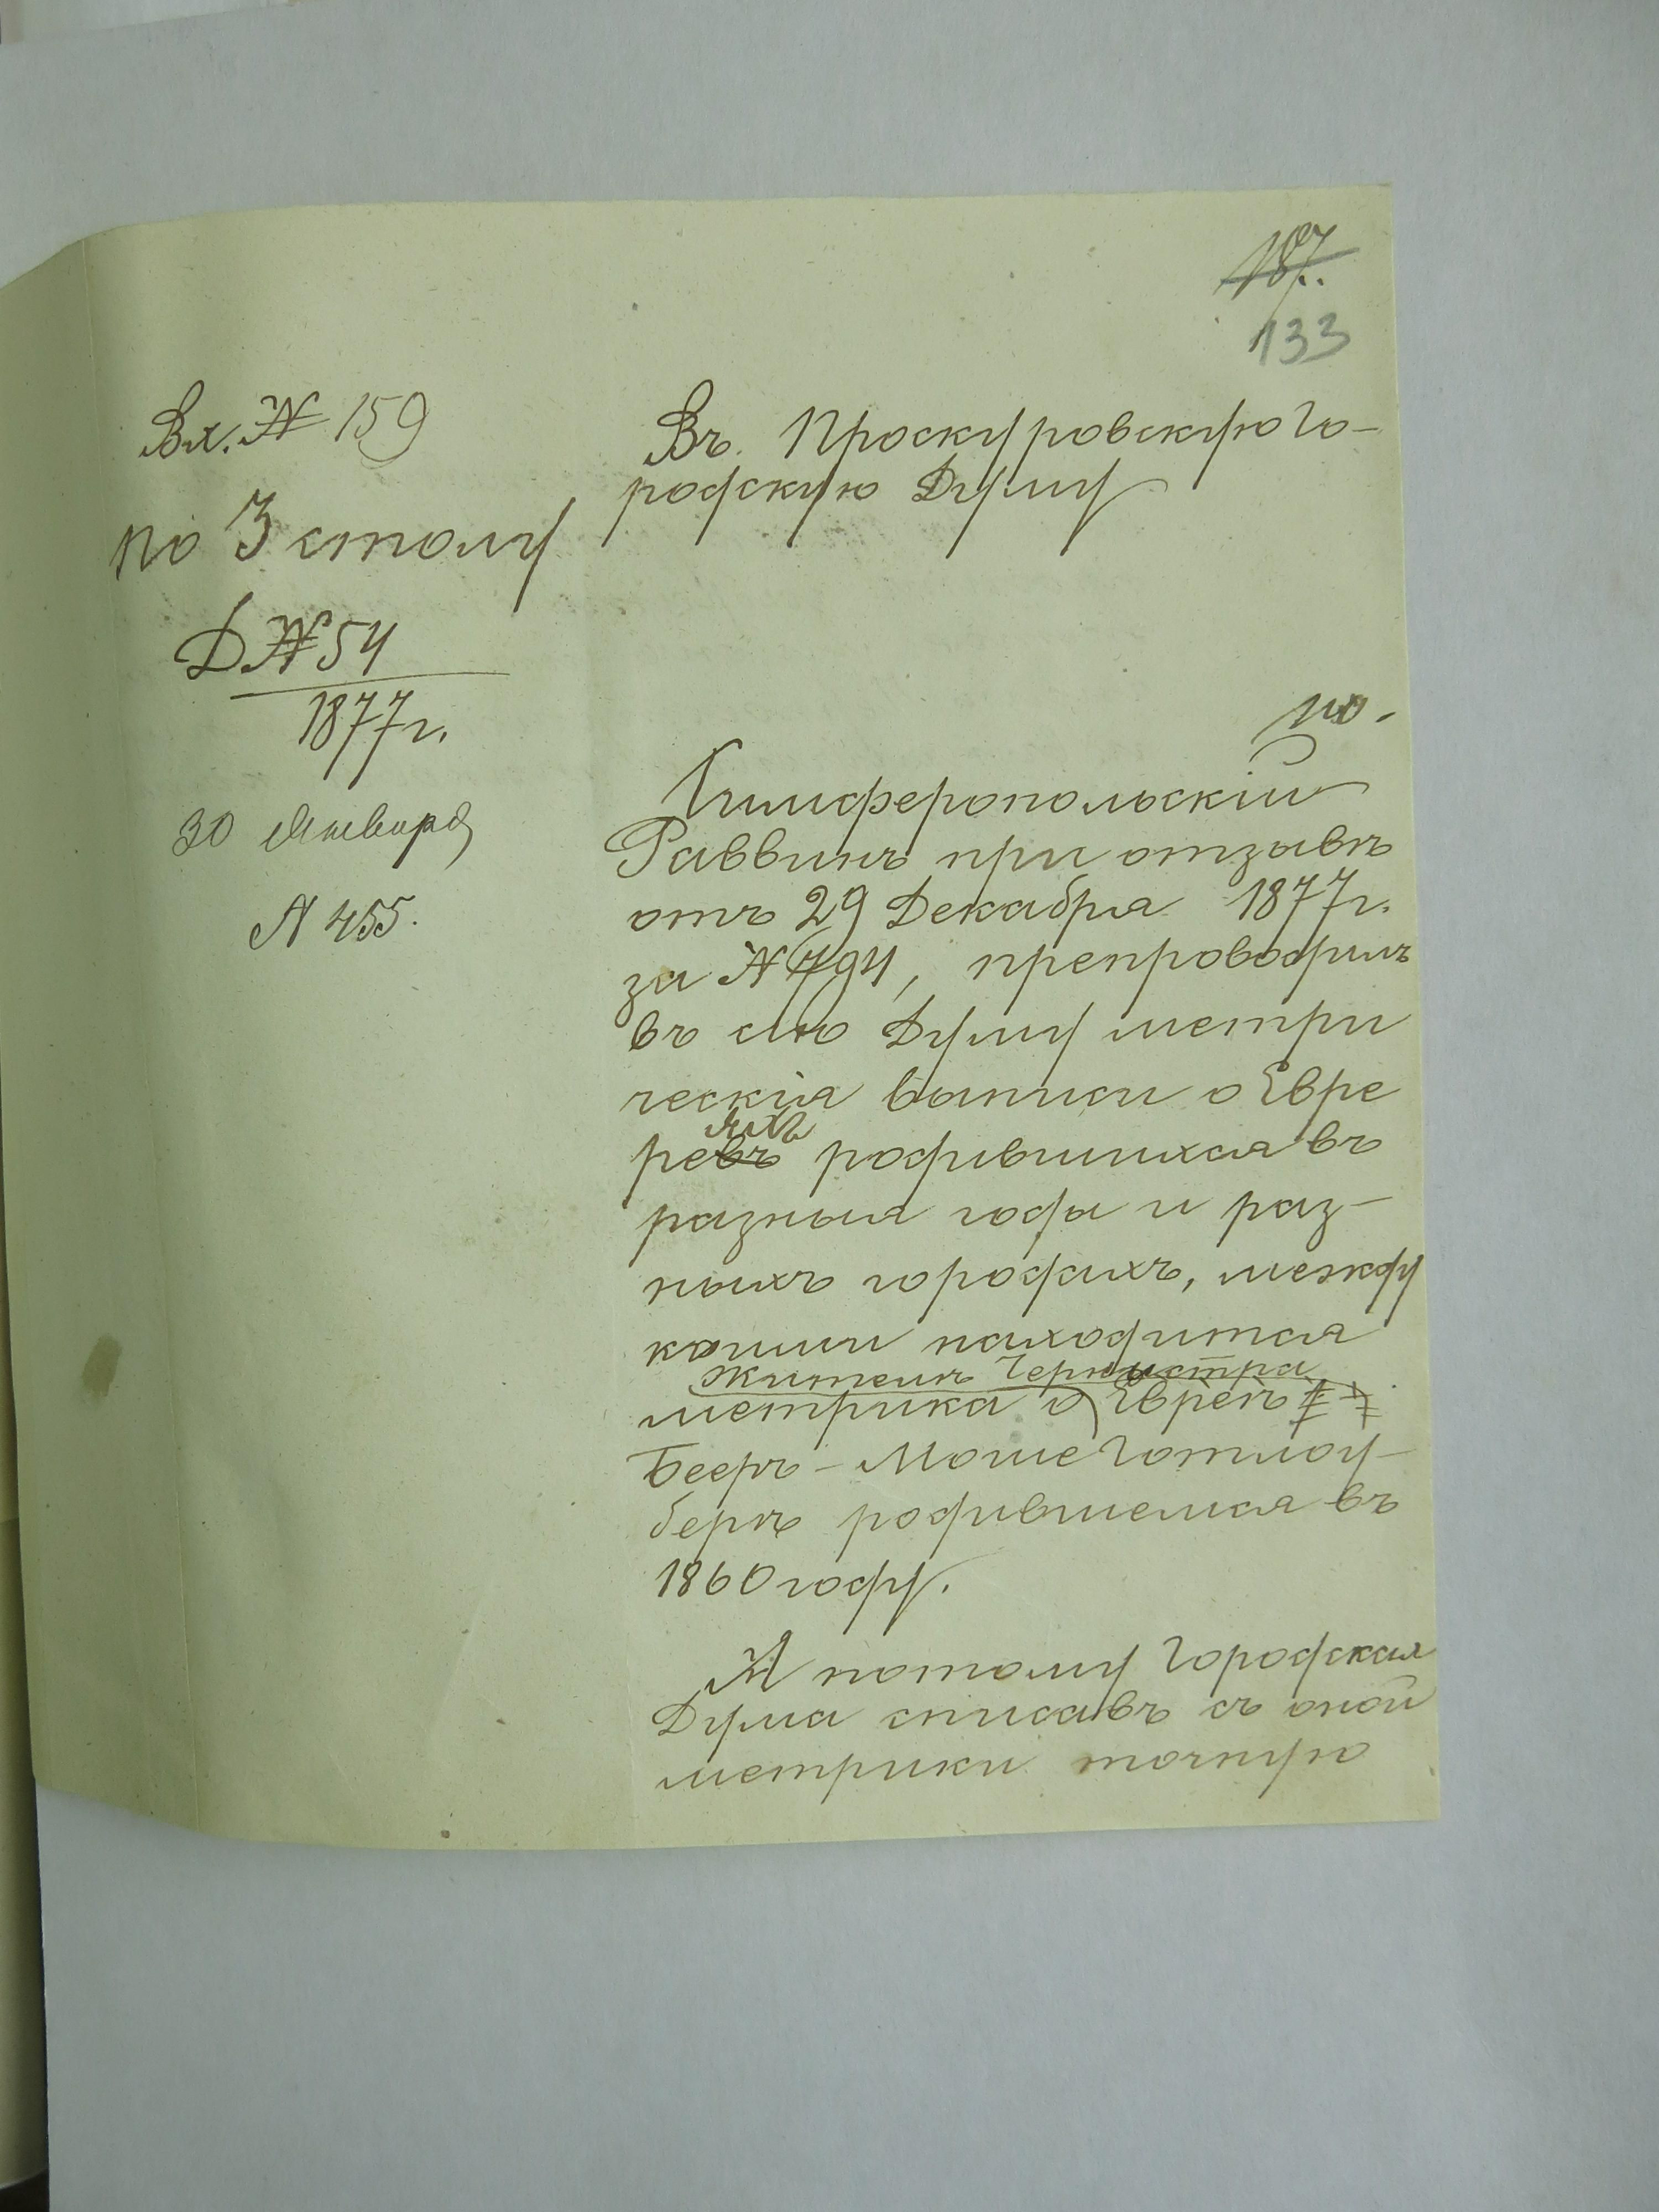 187.
133
Вх. № 159
по 3 столу
Д № 54
1877 г.
30 Января
№ 455.
Въ Проскуровскую Го-
родскую Думу
Симферопольскій
Раввинъ при отзывѣ
отъ 29 Декабря 1877 г.
за № 794, препроводилъ
въ сію Думу метри
ческія выписи о Евре
яхъ
ревъ родившихся въ
разныя годы и раз-
ныхъ городахъ, между
коими находится
жителѣ Черн
метрика о Евреѣ
Беерѣ-Моше Готлоу-
берѣ родившемся въ
1860 году.
А потому Городская
Дума списавъ съ оной
метрики точную